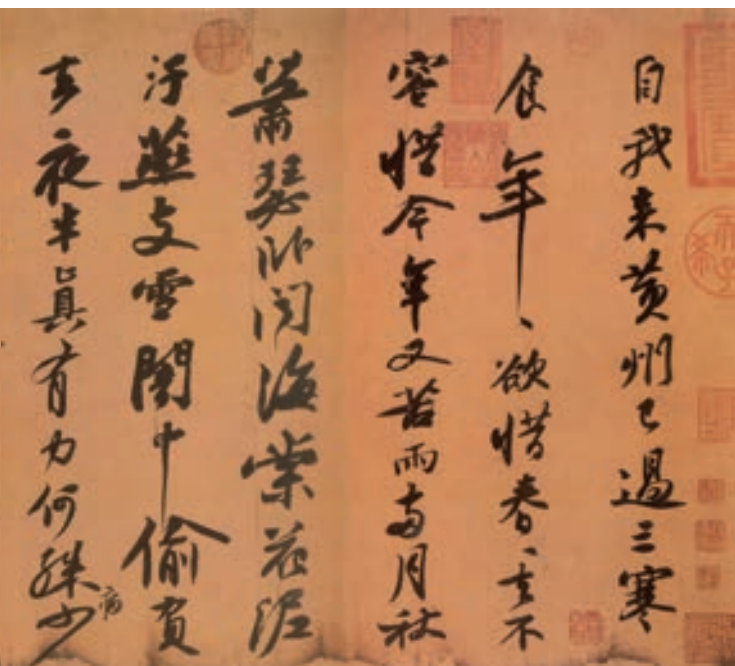 自我来黄州已過三寒
食年〻欲惜春〻去不
容惜今年又苦雨兩月秋
蕭瑟卧聞海棠花泥
汙燕支雪闇中偷負
去夜半真有力何殊少
病